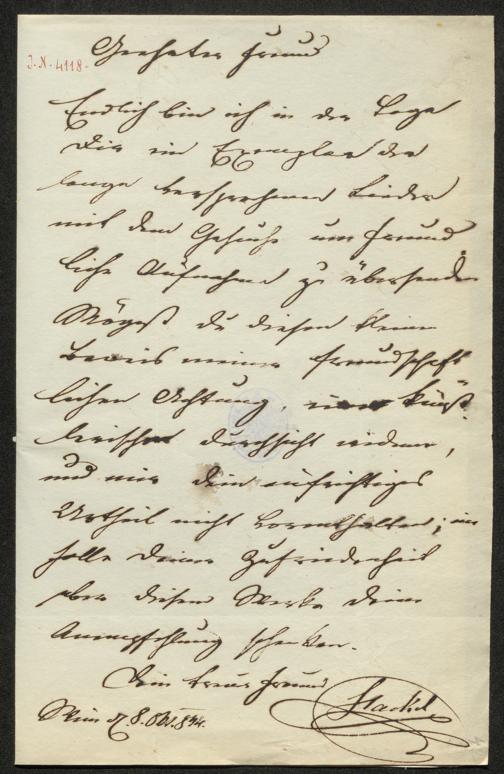 Geehrter Freund
I.N. 4118.
Endlich bin ich in der Lage
Dir ein Exemplar der
lange versprochenen Lieder
mit dem Gesuche um freund
liche Aufnahme zu übersenden
Mögest du diesen kleinen
Beweis meiner freundschaft
lichen Achtung, einer künst
lerischen Durchsicht widmen,
und mir dein aufrichtiges
Urtheil nicht vorenthalten; im
falle Deiner Zufriedenheit
aber diesem Werke Deine
Anempfehlung schenken.
Dein treuer Freund
Hackel
Wien d. 8. 844.